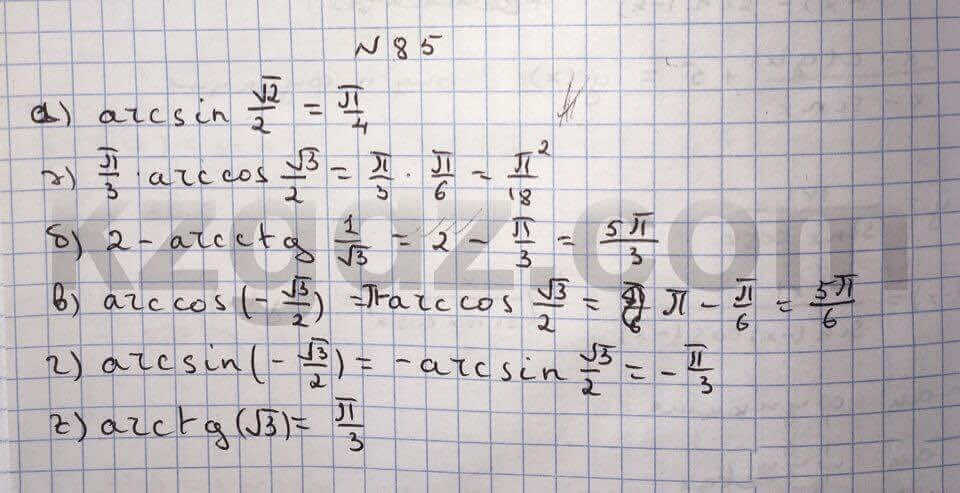 N 85
а) arcsin √2/2 = π/4
г) π/3 · arccos √3/2 = π/3 · π/6 = π²/18
б) 2 - arcctg 1/√3 = 2 - π/3 = 5π/3
в) arccos(-√3/2) = π-arccos √3/2 = π - π/6 = 5π/6
г) arcsin(-√3/2) = -arcsin √3/2 = -π/3
г) arctg(√3) = π/3
kzgdz.com